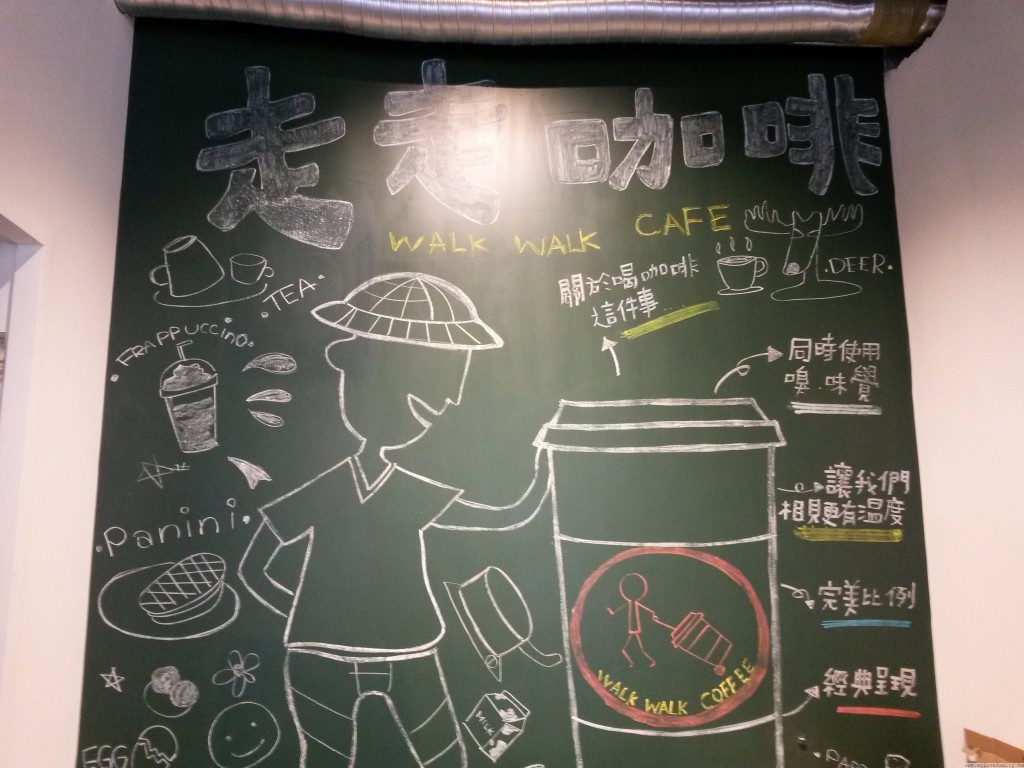 走走咖啡
WALK WALK CAFE
.DEER.
關於喝咖啡
這件事......
.TEA.
.FRAPPUCCINO.
同時使用
嗅.味覺
讓我們
相見更有溫度
.Panini.
完美比例
WALK WALK COFFEE
經典呈現
MILK
EGG